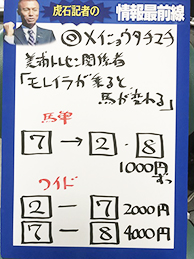 虎石記者の
情報最前線
◎メイショウタチスキ
美浦トレセン関係者
「モレイラが乗ると
馬が変わる」
馬単
7 → 2・8
1000円
ずつ
ワイド
2 − 7 2000円
7 − 8 4000円